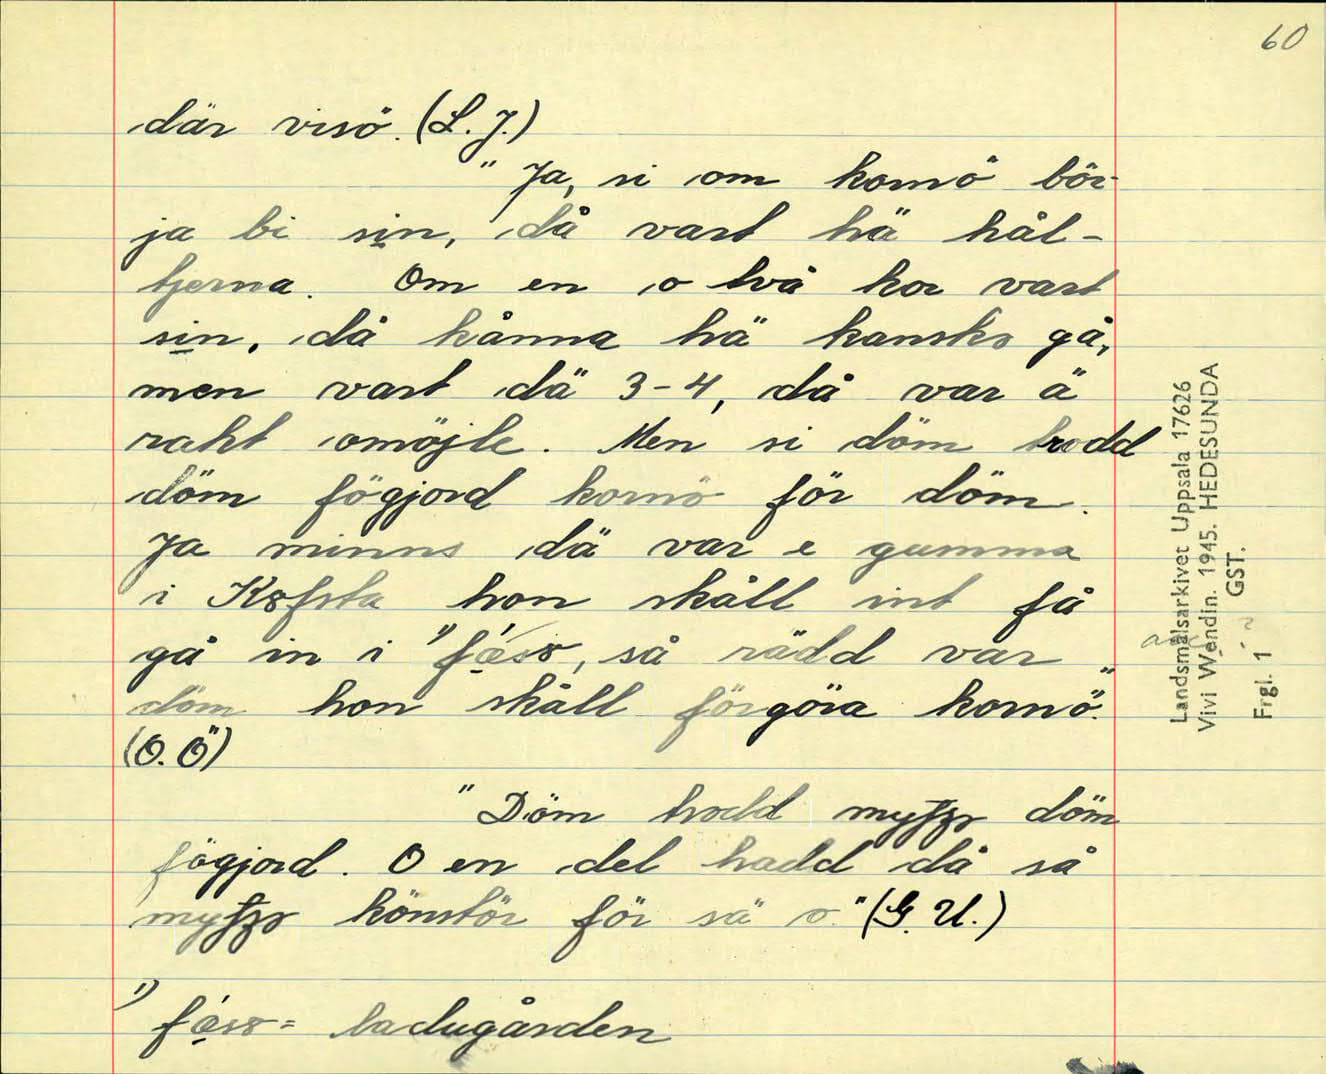 60
där visö. (L. J.)
" Ja, si om kornö bör-
ja bi sin, då vart hä hål-
tjerna. Om en o två kor vart
sin, då kånna hä kansko gå,
men vart dä 3-4, då var ä
raht omöjle. Men si döm trodd
döm fögjord kornö för döm.
Ja minns dä var e gumma
i hon skåll int få
gå in i 1) , så rädd var
döm hon skåll förgöra kornö."
(O. Ö)
" Döm trodd döm
fögjord. O en del hadd då så
könstör för sä o." (G. U.)
1) = ladugården
Landsmålsarkivet Uppsala 17626
Vivi Wendin. 1945. HEDESUNDA
Frgl. 1 GST.